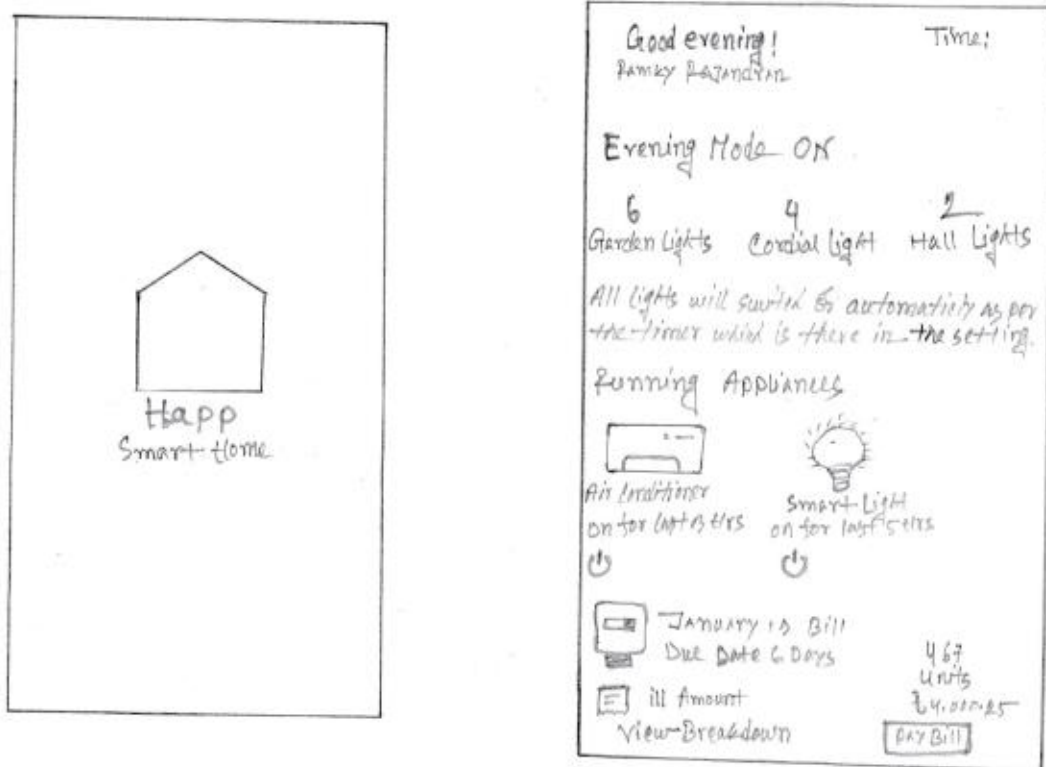 Happ
Smart Home
Good evening! Time:
Ramky Rajandran
Evening Mode ON
6 4 2
Garden Lights Cordial Light Hall Lights
All lights will automaticly as per
the timer which is there in the setting.
Running Appliances
Air Conditioner
on for last Hrs
Smart Light
on for last 5 Hrs
January Bill
Due Date 6 Days
467
Units
ill Amount
View Breakdown
Pay Bill